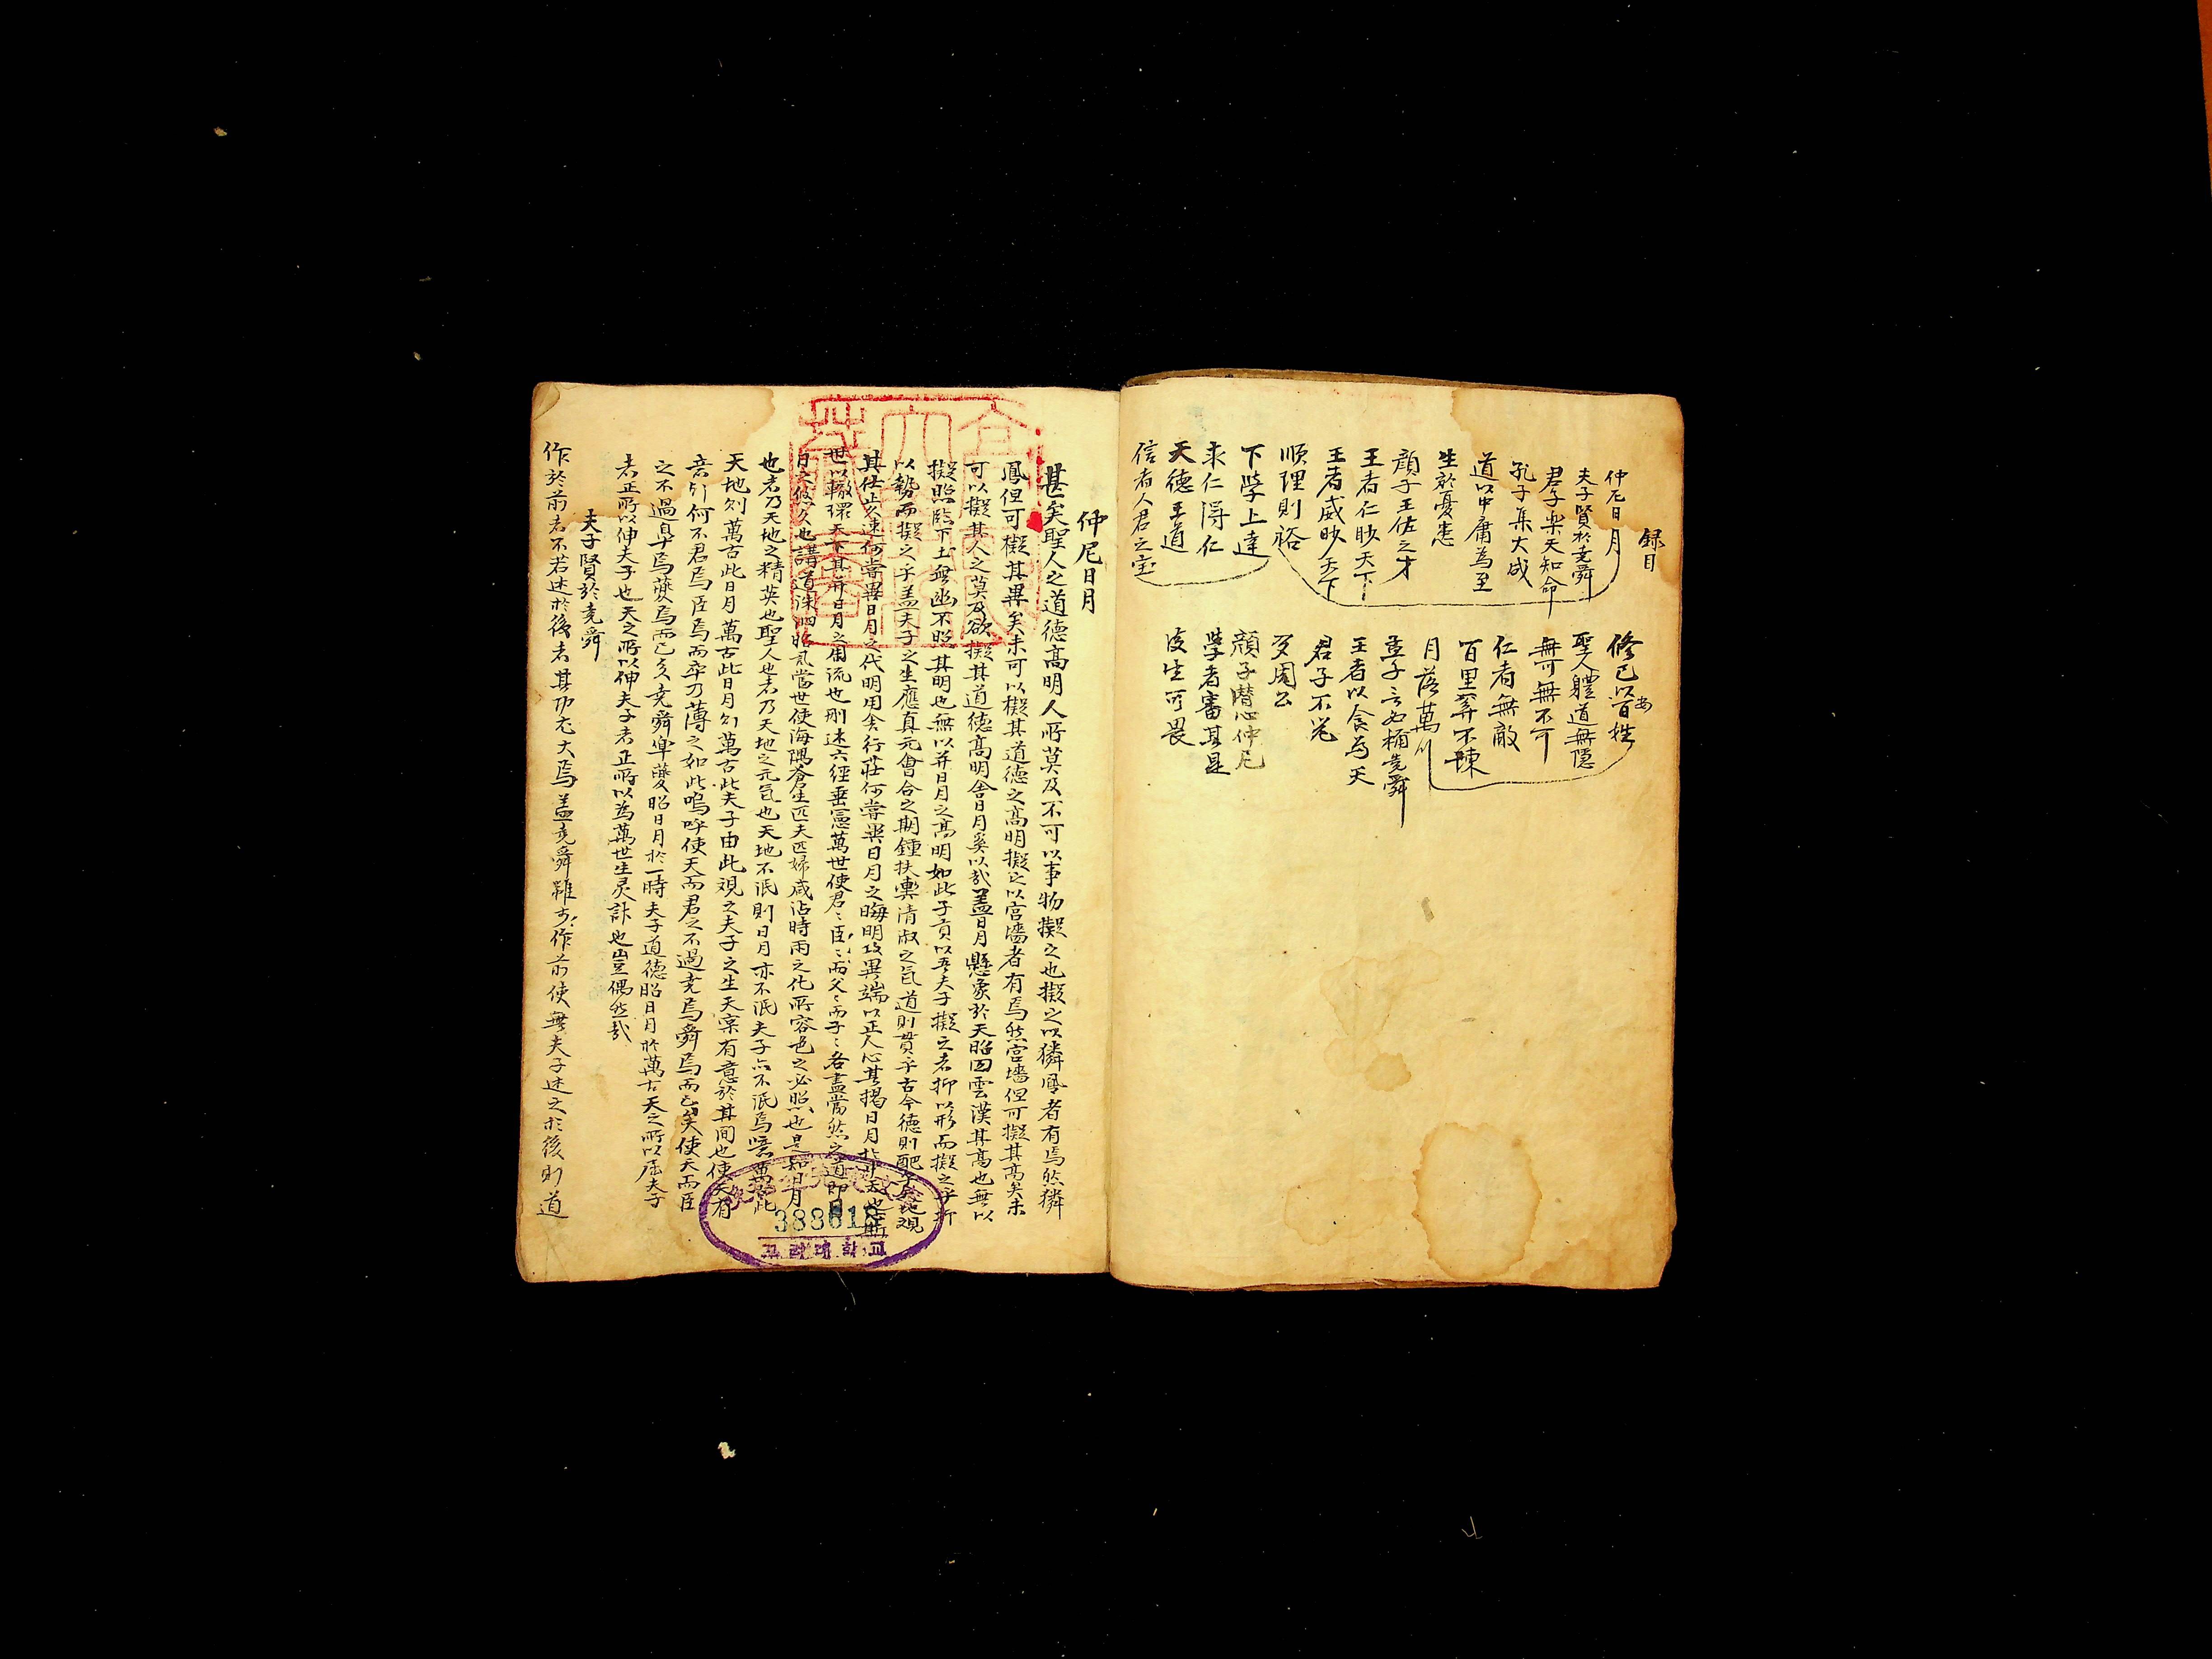 録目
仲尼日月
夫子賢於堯舜
君子樂天知命
孔子集大成
道以中庸為至
生於憂患
顔子王佐之才
王者仁眇天下
王者威眇天下
順理則裕
下學上達
求仁得仁
天德王道
信者人君之宝
修己以安百姓
聖人軆道無隱
無可無不可
仁者無敵
百里奚不諫
月落萬川
孟子言必稱堯舜
王者以食為天
君子不器
夢周公
顔子潜心仲尼
學者審其是
後生可畏
仲尼日月
甚矣聖人之道德高明人所莫及不可以事物擬之也擬之以獜鳳者有焉然獜
鳳但可擬其異矣未可以擬其道德之高明擬之以宮墻者有焉然宮墻但可擬其高矣未
可以擬其人之莫及欲擬其道德高明舍日月奚以哉盖日月懸象於天昭囬雲漢其高也無以
擬照臨下土無幽不照其明也無以并日月之高明如此子貢以吾夫子擬之者抑以形而擬之乎抑
以勢而擬之乎盖夫子之生應真元會合之期鍾扶輿清淑之氣道則貫乎古今德則配乎天地觀
其仕止久速何嘗異日月之代明用舍行莊何嘗異日月之晦明攻異端以正人心其揭日月於中天也
世以轍環天下其并日月之周流也刪述六經垂憲萬世使君〻臣〻而父〻而子〻各盡當然之道即
日久悠久也講道洙泗昭氣當世使海隅蒼生匹夫匹婦咸沾時雨之化所容光之必照也是知日月
也者乃天地之精英也聖人也者乃天地之元氣也天地不泯則日月亦不泯夫子亦不泯焉噫萬古此
天地則萬古此日月萬古此日月則萬古此夫子由此觀之夫子之生天㐮有意於其間也使天有
意則何不君焉臣焉而卒乃薄之如此嗚呼使天而君之不過堯焉舜焉而已矣使天而臣
之不過皐焉夔焉而已矣堯舜皐夔昭日月於一時夫子道德昭日月於萬古天之所以屈夫子
者正所以伸夫子也天之所以伸夫子者正所以為萬世生灵計也豈偶然哉
夫子賢於堯舜
作於前者不若述於後者其功尤大焉盖堯舜雖少作前使無夫子述之於後則道
388618
고려대학교